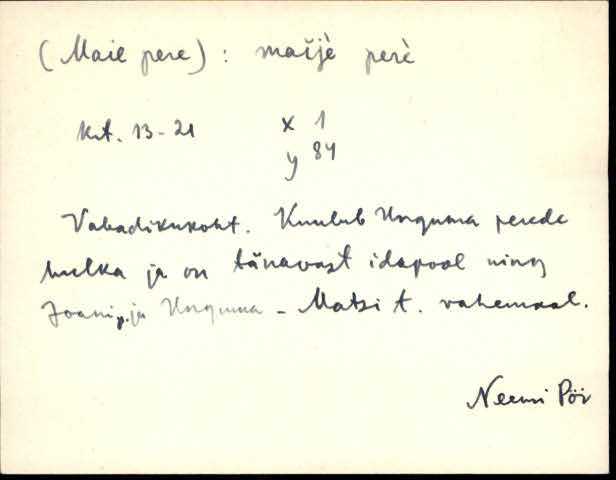 (Maie pere) : maìjè perè
krt. 13-21 x 1
y 84
Vabadikukoht. Kuulub Unguma perede
hulka ja on tänavast idapool ning
Joani p. ja Unguma - Matsi t. vahemaal.
Neemi Pöi